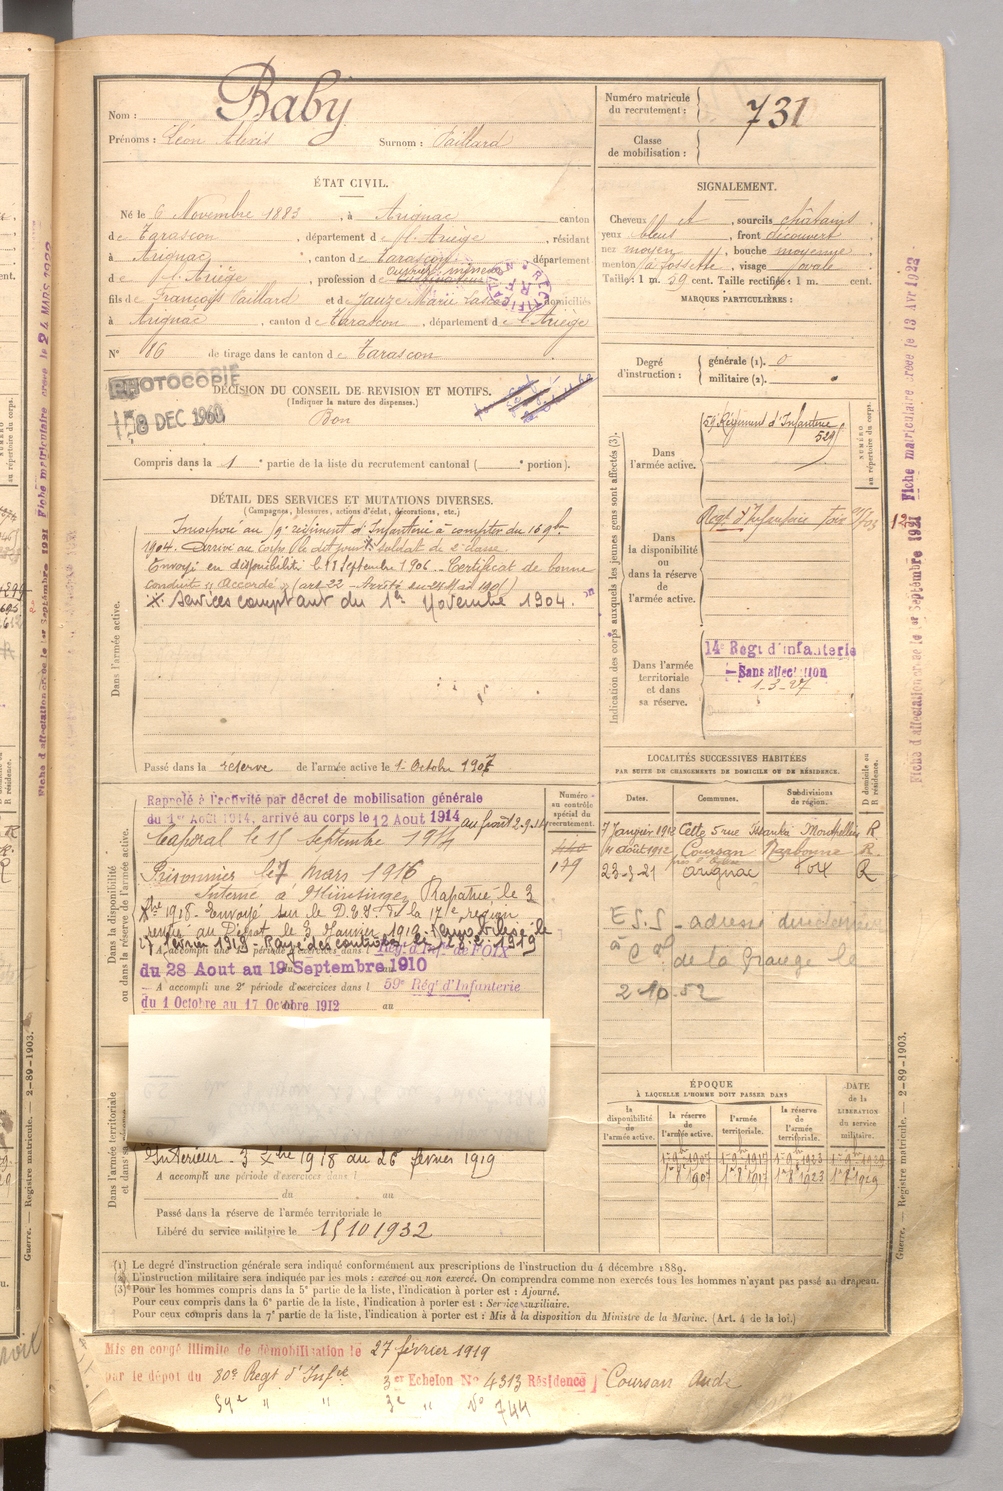 Nom : Baby
Prénoms : Léon Alexis Surnom : Paillard
Numéro matricule du recrutement : 731
Classe de mobilisation :
ÉTAT CIVIL.
Né le 6 Novembre 1883, à Arignac canton
de Tarascon, département de l'Ariège, résidant
à Arignac, canton de Tarascon, département
de l'Ariège, profession de
fils de François Paillard et de Jauze Marie domiciliés
à Arignac, canton de Tarascon, département de l'Ariège
N° 86 de tirage dans le canton de Tarascon
RECTIFICATION
R F
SIGNALEMENT.
Cheveux et, sourcils châtains
yeux bleus, front découvert
nez moyen, bouche moyenne
menton à fossette, visage ovale
Taille : 1 m. 59 cent. Taille rectifiée : 1 m. cent.
MARQUES PARTICULIÈRES :
Degré d'instruction : générale (1). 0
militaire (2).
PHOTOCOPIE
DEC 1960
DÉCISION DU CONSEIL DE REVISION ET MOTIFS.
(Indiquer la nature des dispenses.)
Bon
Compris dans la 1e partie de la liste du recrutement cantonal ( e portion).
DÉTAIL DES SERVICES ET MUTATIONS DIVERSES.
(Campagnes, blessures, actions d'éclat, décorations, etc.)
Dans l'armée active.
Incorporé au 9e régiment d'Infanterie à compter du 16 9bre
1904. Arrivé au Corps le dit jour, soldat de 2e classe.
Envoyé en disponibilité le 18 Septembre 1906. Certificat de bonne
conduite "Accordé"
X. Services comptant du 1er Novembre 1904.
Passé dans la réserve de l'armée active le 1 Octobre 1907
Indication des corps auxquels les jeunes gens sont affectés (3).
NUMÉRO au répertoire du corps.
Dans l'armée active.
59 Régiment d'Infanterie
529
Dans la disponibilité ou dans la réserve de l'armée active.
Regt d'Infanterie Foix
Dans l'armée territoriale et dans sa réserve.
14e Regt d'infanterie
Sans affectation
1-3-27
Fiche matriculaire créée le 13 Avr 1923
Fiche d'affectation créée le 1er Septembre 1921
Dans la disponibilité ou dans la réserve de l'armée active.
Numéro au contrôle spécial du recrutement.
179
Rappelé à l'activité par décret de mobilisation générale
du 1er Août 1914, arrivé au corps le 12 Aout 1914 au front 2-9-14
Caporal le 15 Septembre 1914
Prisonnier le 7 mars 1916
Interné à Münsingen Rapatrié le 3
Xbre 1918. envoyé sur le D. de la 17e région
rentré au Dépôt le 3 Janvier 1919. Démobilisé le
27 février 1919. Rayé des contrôles le 28.2.1919
A accompli une 1e période d'exercices dans l Reg. d'Inf. de FOIX
du 28 Aout au 19 Septembre 1910
A accompli une 2e période d'exercices dans l 59e Rég. d'Infanterie
du 1 Octobre au 17 Octobre 1912 au
LOCALITÉS SUCCESSIVES HABITÉES
PAR SUITE DE CHANGEMENTS DE DOMICILE OU DE RÉSIDENCE.
Dates. Communes. Subdivisions de région. D domicile ou R résidence.
7 Janvier 1912 Cette 5 rue Montpellier R.
11 août 1912 Coursan Narbonne R.
23-3-21 Arignac Foix R
E.S.S - adresse
de la Grange le
2-10-52
ÉPOQUE
À LAQUELLE L'HOMME DOIT PASSER DANS
la disponibilité de l'armée active. la réserve de l'armée active. l'armée territoriale. la réserve de l'armée territoriale. DATE de la LIBÉRATION DU SERVICE militaire.
1er 8bre 1907 1er 8bre 1917 1er 8bre 1923 1er 8bre 1929
Dans l'armée territoriale
Intérieur - 3 Xbre 1918 au 26 février 1919
A accompli une période d'exercices dans l
du au
Passé dans la réserve de l'armée territoriale le
Libéré du service militaire le 15 10 1932
(1) Le degré d'instruction générale sera indiqué conformément aux prescriptions de l'instruction du 4 décembre 1889.
(2) L'instruction militaire sera indiquée par les mots : exercé ou non exercé. On comprendra comme non exercés tous les hommes n'ayant pas passé au drapeau.
(3) Pour les hommes compris dans la 5e partie de la liste, l'indication à porter est : Ajourné.
Pour ceux compris dans la 6e partie de la liste, l'indication à porter est : Service auxiliaire.
Pour ceux compris dans la 7e partie de la liste, l'indication à porter est : Mis à la disposition du Ministre de la Marine. (Art. 4 de la loi.)
Guerre. — Registre matricule. — 2-89-1903.
Mis en congé illimité de démobilisation le 27 février 1919
par le dépôt du 80e Regt d'Infrie 3er Echelon No 4313 Résidence Coursan Aude
59e " " 3e " No 744